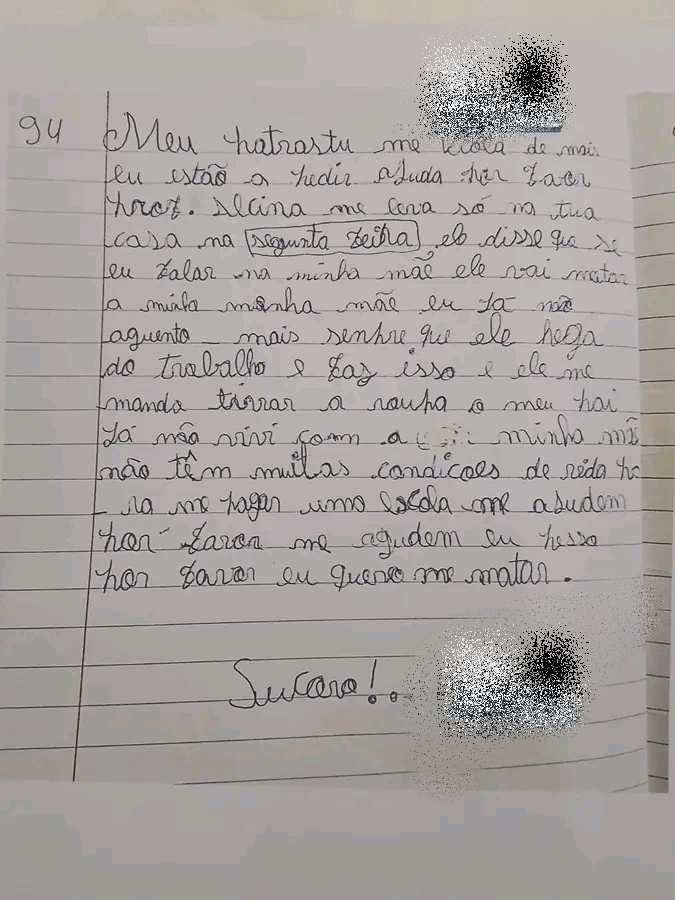 94
Meu hatrastu me viola de mais
eu estão a hedir aJuda hor Favor
hrof. Alcina me leva só na tua
casa na segunta Feihra elo disse que se
eu Falar na minha mãe ele vai matar
a minha mãe eu Já não
aguento mais senhre que ele hega
do trabalho e Faz isso e ele me
manda tirrar a rouha o meu hai
Já não vivi com a minha mã
não têm muitas condicoes de
ra me hagar uma escola me aJudem
hor Favor me agudem eu hesso
hor Favor eu quero me matar.